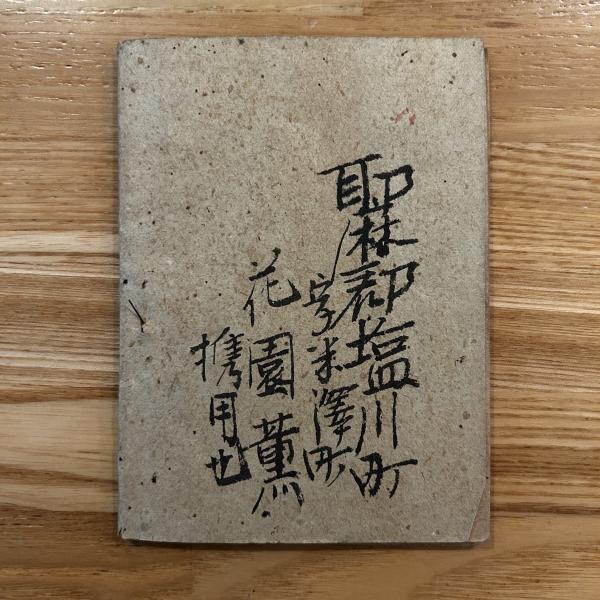 耶麻郡塩川町
字米澤町
花園薫
携用也